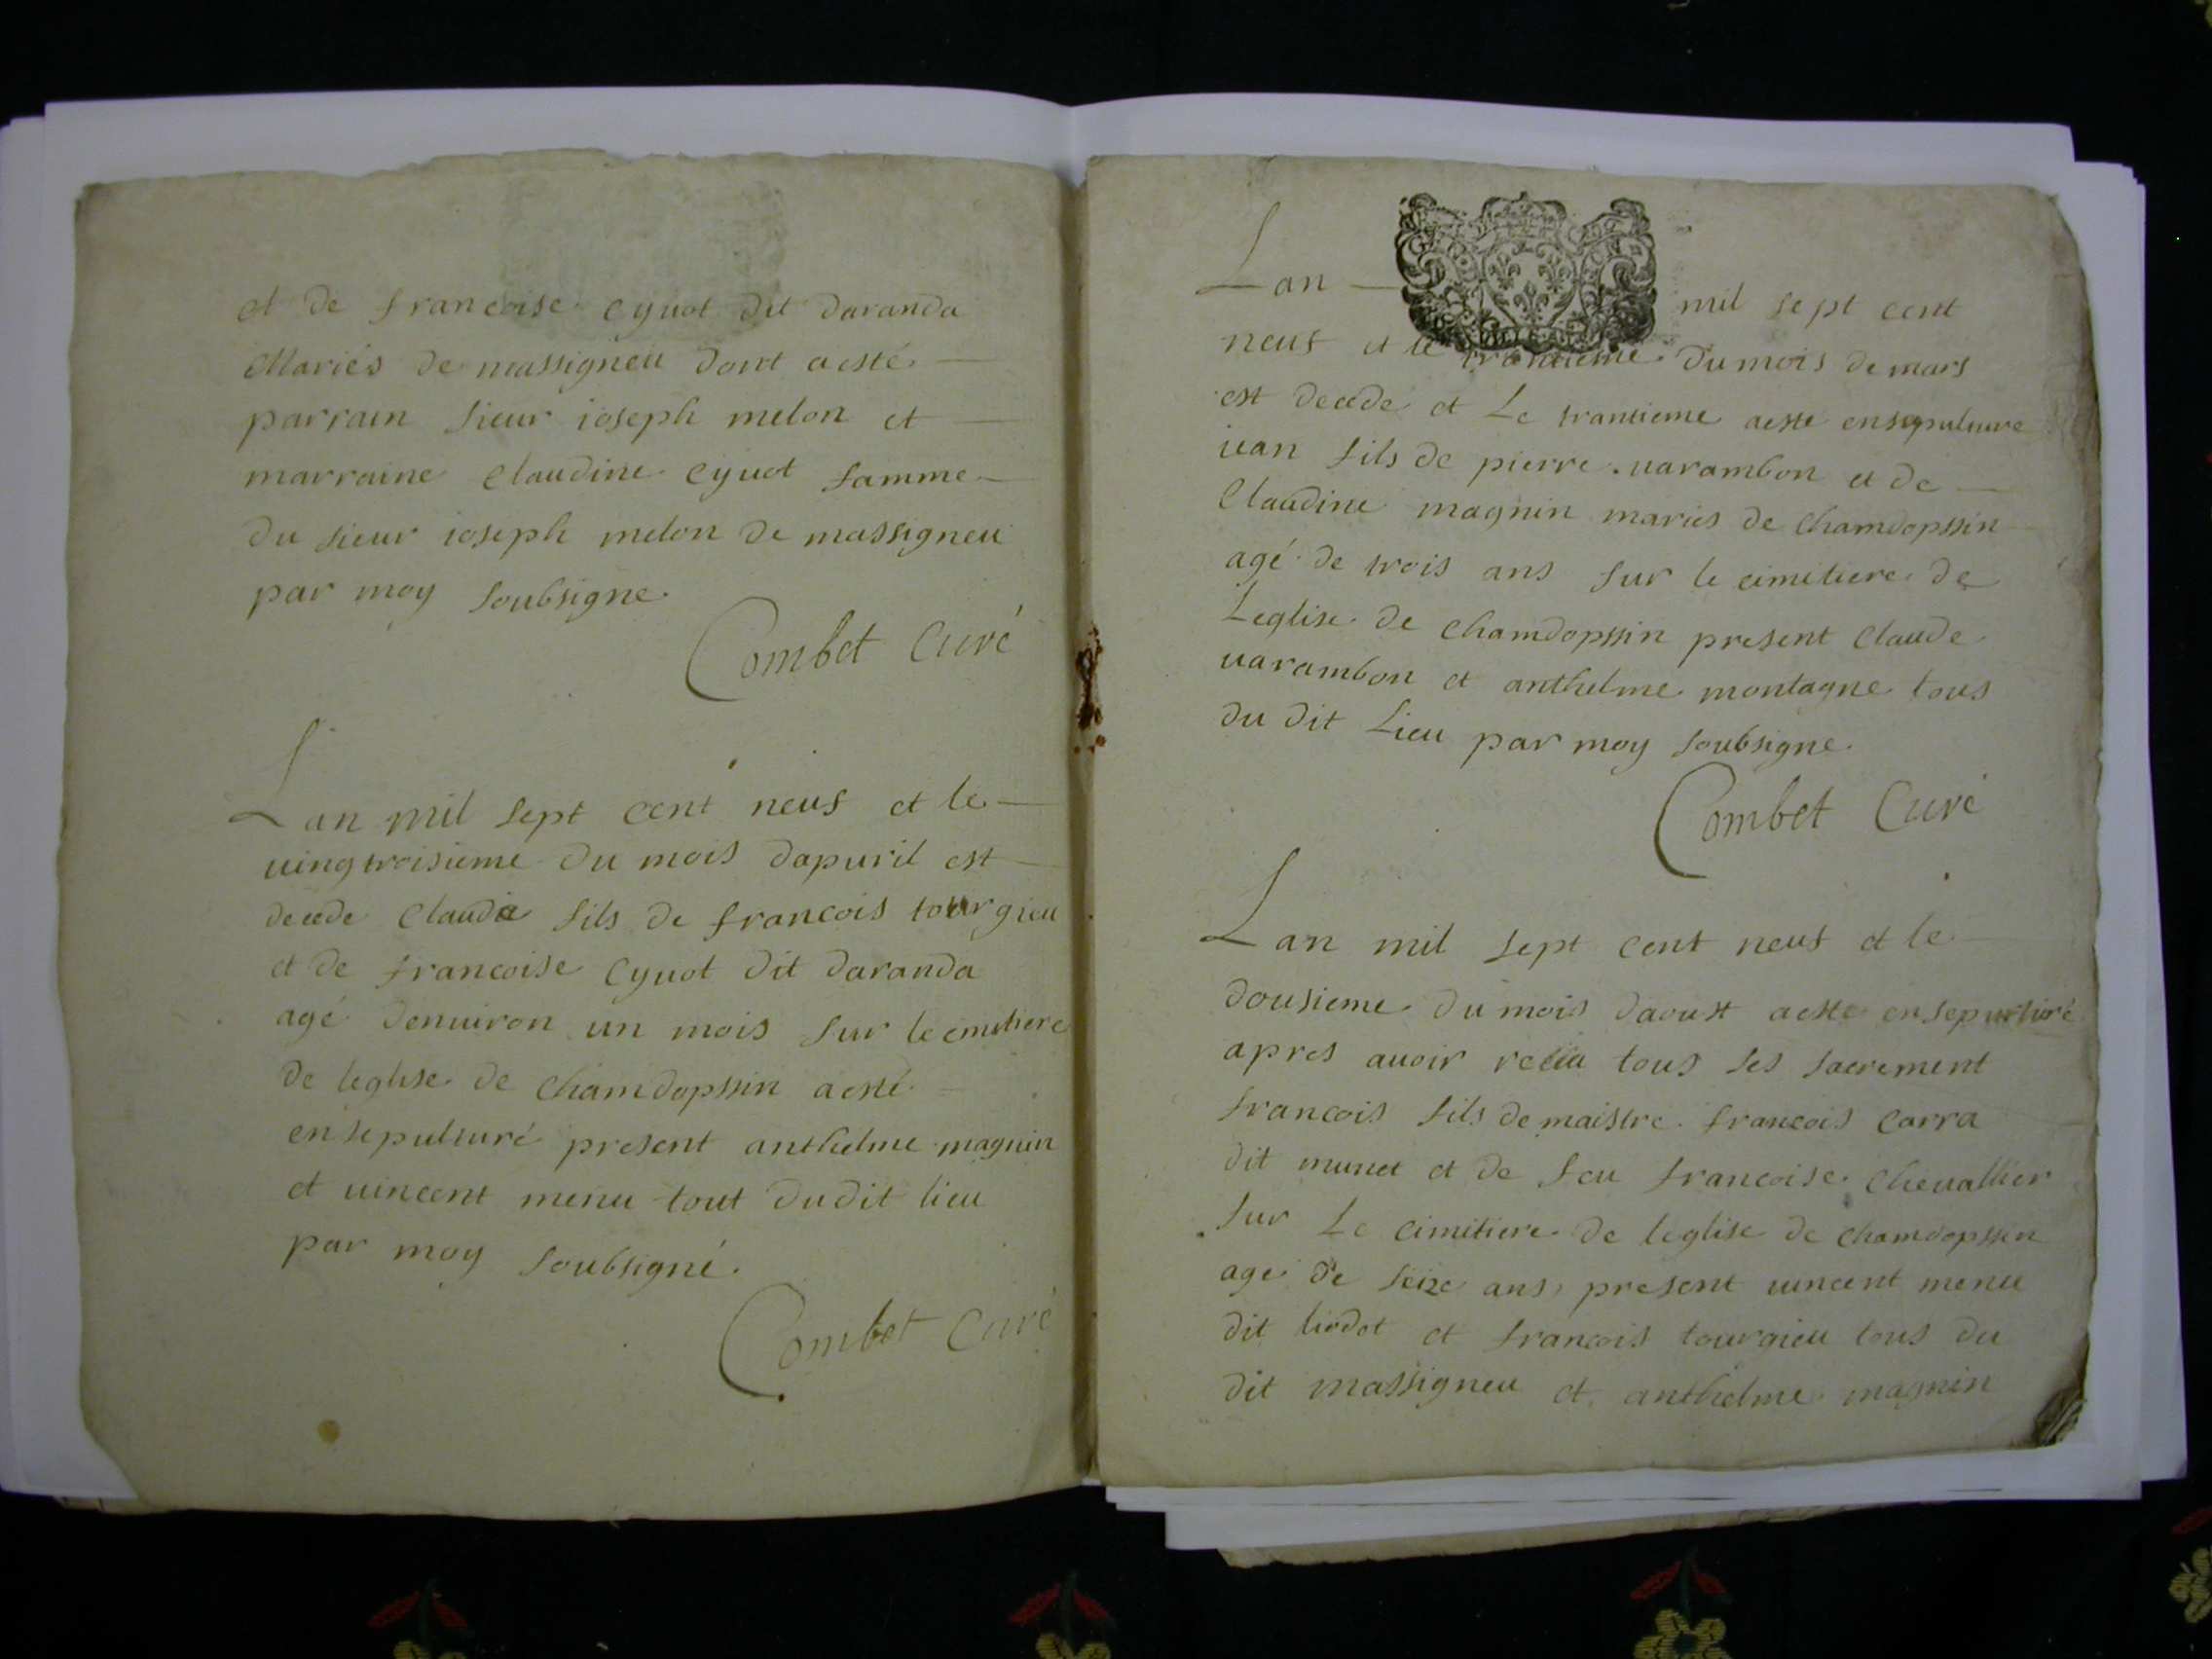 et de francoise cyuot dit daranda
Mariés de massigneu dont a esté
parrain sieur ioseph melon et
marraine Claudine cyuot famme
du sieur ioseph melon de massigneu
par moy soubsigne
Combet Curé
Lan mil sept cent neuf et le
uingtroisieme du mois dapuril est
decede Claude fils de francois tourgieu
et de francoise Cyuot dit daranda
agé denuiron un mois sur le cimitiere
de leglise de Chamdopssin a esté
ensepulturé present anthelme magnin
et uincent menu tout du dit lieu
par moy soubsigné
Combet Curé
Lan mil sept cent
neuf et le trantieme du mois de mars
est decede et Le trantieme a este ensepulture
iean fils de pierre uarambon et de
Claudine magnin mariés de Chamdopssin
agé de trois ans sur le cimitiere de
Leglise de Chamdopssin present Claude
uarambon et anthelme montagne tous
du dit Lieu par moy soubsigne
Combet Curé
Lan mil sept cent neuf et le
dousieme du mois daoust a este ensepulturé
apres auoir receu tous ses sacrement
francois fils de maistre francois Carra
dit munet et de feu francoise Cheuallier
sur Le cimitiere de leglise de Chamdopssin
age de seize ans present uincent menu
dit liodet et francois tourgieu tous du
dit massigneu et anthelme magnin